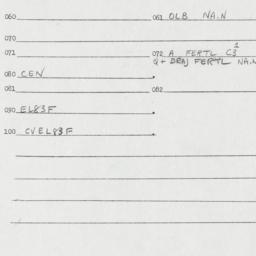 060 061 OLB NA.N
070
071 072 A FERTL C 1/3
Q + DRAJ FERTL NA.N
080 CEN
081 082
090 EL83F
100 CVEL83F